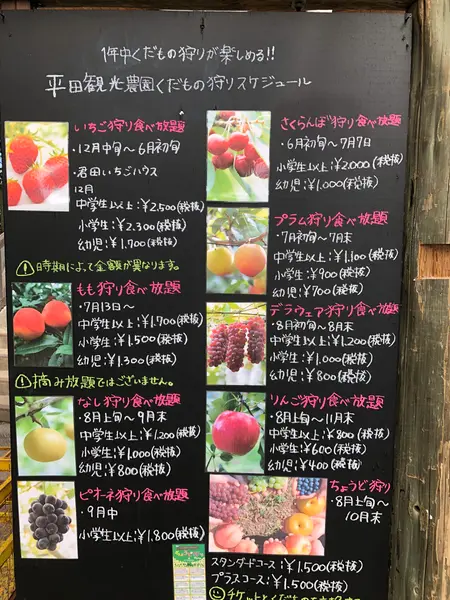 1年中くだもの狩りが楽しめる!!
平田観光農園くだもの狩りスケジュール
いちご狩り食べ放題
・12月中旬～6月初旬
・君田いちごハウス
12月
中学生以上:¥2,500(税抜)
小学生:¥2,300(税抜)
幼児:¥1,900(税抜)
!時期によって金額が異なります。
もも狩り食べ放題
・7月13日～
中学生以上:¥1,700(税抜)
小学生:¥1,500(税抜)
幼児:¥1,300(税抜)
!摘み放題ではございません。
なし狩り食べ放題
・8月上旬～9月末
中学生以上:¥1,200(税抜)
小学生:¥1,000(税抜)
幼児:¥800(税抜)
ピオーネ狩り食べ放題
・9月中
小学生以上:¥1,800(税抜)
さくらんぼ狩り食べ放題
・6月初旬～7月7日
小学生以上:¥2,000(税抜)
幼児:¥1,000(税抜)
プラム狩り食べ放題
・7月初旬～7末
中学生以上:¥1,100(税抜)
小学生:¥900(税抜)
幼児:¥700(税抜)
デラウェア狩り食べ放題
・8月初旬～8月末
中学生以上:¥1,200(税抜)
小学生:¥1,000(税抜)
幼児:¥800(税抜)
りんご狩り食べ放題
・8月上旬～11月末
中学生以上:¥800(税抜)
小学生:¥600(税抜)
幼児:¥400(税抜)
ちょうど狩り
・8月上旬～
10月末
スタンダードコース:¥1,500(税抜)
プラスコース:¥1,500(税抜)